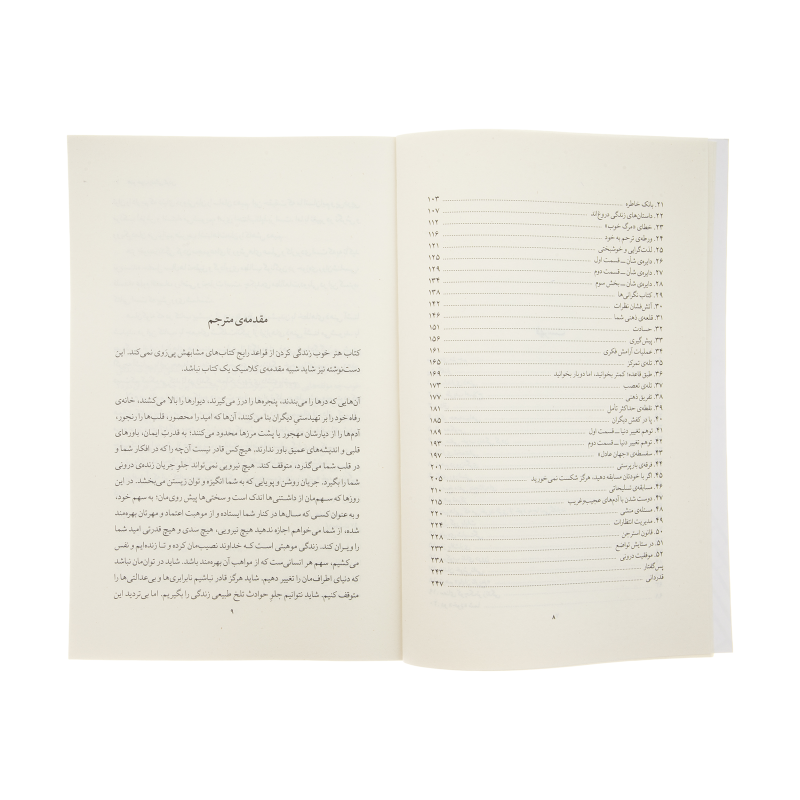 ۲۱. بانک خاطره ۱۰۳
۲۲. داستان‌های زندگی دروغ‌اند ۱۰۷
۲۳. خطای «مرگ خوب» ۱۱۲
۲۴. ورطه‌ی ترحم به خود ۱۱۶
۲۵. لذت‌گرایی و خوشبختی ۱۲۱
۲۶. دایره‌ی شأن ــ قسمت اول ۱۲۵
۲۷. دایره‌ی شأن ــ قسمت دوم ۱۲۹
۲۸. دایره‌ی شأن ــ بخش سوم ۱۳۴
۲۹. کتاب نگرانی‌ها ۱۳۸
۳۰. آتش‌فشان نظرات ۱۴۲
۳۱. قلعه‌ی ذهنی شما ۱۴۶
۳۲. حسادت ۱۵۱
۳۳. پیش‌گیری ۱۵۶
۳۴. عملیات آرامش فکری ۱۶۱
۳۵. تله‌ی تمرکز ۱۶۵
۳۶. طبق قاعده؛ کمتر بخوانید، اما دوبار بخوانید ۱۶۹
۳۷. تله‌ی تعصب ۱۷۳
۳۸. تفریق ذهنی ۱۷۷
۳۹. نقطه‌ی حداکثر تأمل ۱۸۱
۴۰. پا در کفش دیگران ۱۸۵
۴۱. توهم تغییر دنیا ــ قسمت اول ۱۸۹
۴۲. توهم تغییر دنیا ــ قسمت دوم ۱۹۳
۴۳. سفسطه‌ی «جهان عادل» ۱۹۷
۴۴. فرقه‌ی باربرستی ۲۰۱
۴۵. اگر با خودتان مسابقه دهید، هرگز شکست نمی‌خورید ۲۰۵
۴۶. مسابقه‌ی تسلیحاتی ۲۱۰
۴۷. دوست شدن با آدم‌های عجیب‌وغریب ۲۱۵
۴۸. مسئله‌ی منشی ۲۲۰
۴۹. مدیریت انتظارات ۲۲۴
۵۰. قانون استرجن ۲۲۸
۵۱. در ستایش تواضع ۲۳۳
۵۲. موفقیت درونی ۲۳۸
پس‌گفتار ۲۴۳
قدردانی ۲۴۷
۸
مقدمه‌ی مترجم
کتاب هنر خوب زندگی کردن از قواعد رایج کتاب‌های مشابهش پی‌روی نمی‌کند. این
دست‌نوشته نیز شاید شبیه مقدمه‌ی کلاسیک یک کتاب نباشد.
آن‌هایی که درها را می‌بندند، پنجره‌ها را درز می‌گیرند، دیوارها را بالا می‌کشند، خانه‌ی
رفاه خود را بر تهیدستیِ دیگران بنا می‌کنند، آن‌ها که امید را محصور، قلب‌ها را رنجور،
آدم‌ها را از دیارشان مهجور یا پشت مرزها محدود می‌کنند؛ به قدرتِ ایمان، باورهای
قلبی و اندیشه‌های عمیق باور ندارند. هیچ‌کس قادر نیست آن‌چه را که در افکار شما و
در قلب شما می‌گذرد، متوقف کند. هیچ نیرویی نمی‌تواند جلو جریان زنده‌ی درونی
شما را بگیرد. جریان روشن و پویایی که به شما انگیزه و توان زیستن می‌بخشد. در این
روزها که سهم‌مان از داشتنی‌ها اندک است و سختی‌ها پیش روی‌مان؛ به سهم خود،
و به عنوان کسی که سال‌ها در کنار شما ایستاده و از موهبت اعتماد و مهرتان بهره‌مند
شده، از شما می‌خواهم اجازه ندهید هیچ نیرویی، هیچ سدی و هیچ قدرتی امید شما
را ویـران کند. زندگی موهبتی اسـت کـه خداوند نصیب‌مان کرده و تـا زنده‌ایم و نفس
می‌کشیم، سهم هر انسانی‌ست که از مواهب آن بهره‌مند باشد. شاید در توان‌مان نباشد
که دنیای اطراف‌مان را تغییر دهیم. شاید هرگز قادر نباشیم نابرابری‌ها و بی‌عدالتی‌ها را
متوقف کنیم. شاید نتوانیم جلو حوادث تلخ طبیعی زندگی را بگیریم. اما بی‌تردید این
۹